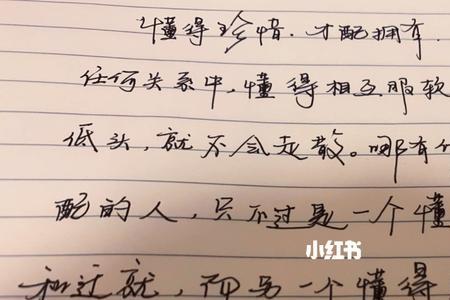 懂得珍惜.才配拥有.
任何关系中,懂得相互服软
低头,就不会走散。哪有什
配的人,只不过是一个懂
小红书
和迁就,而另一个懂得